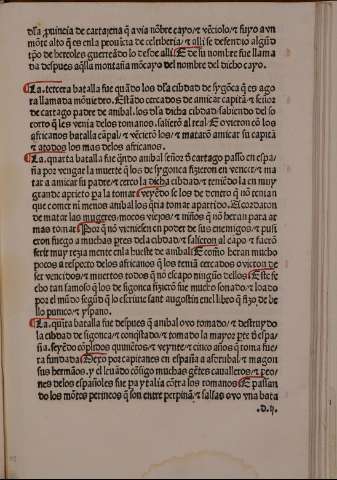 dſa ꝓuincia de cartajena q̃ avia nõbre cayo/ ⁊ vẽciolo/ ⁊ fuyo a vn
mõte alto q̃ es en la prouĩcia de celtiberia/ ⁊ alli ſe defendio algũd
tpo de hercoles guerreãdo lo deſde alli. E de ſu nombre fue llama
da deſpues aq̃lla montaña mõcayo del nombre del dicho cayo.
La. tercera batalla fue quãdo los dſa cibdad de ſygõça que es ago
ra llamada mõuiedro. Eſtãdo cercados de amicar capitã ⁊ ſeñor
de cartago padre de anibal. los dſa dicha cibdad/ſabiendo del ſo
corro que les venia delos romanos. ſalierõ al real. E ovieron cõ los
africanos batalla cãpal/ ⁊ vẽcierõ los/ ⁊ matarõ amicar ſu capitã
⁊ atodos los mas delos africanos.
La. quarta batalla fue qñdo anibal ſeñor đ cartago paſſo en eſpa/
ña por vengar la muerte q̃ los de ſygonca fizieron en vencer/ ⁊ ma
tar a amicar ſu padre/ ⁊ cerco la dicha cibdad/ ⁊ teniẽdo la en muy
grande aprieto pa la tomar/ veyẽdo ſe los de dentro q̃ no tenian
que comer ni menos anibal los q̃ria tomar a partido. Acordaron
de matar las mugeres/ moços viejos/ ⁊ niños q̃ no heran para ar
mas tomar. Por q̃ no vinieſen en poder de ſus enemigos/ ⁊ puſi
eron fuego a muchas ptes dela cibdad/ ⁊ ſalieron al capo/ ⁊ fuerõ
ferir muy rezia mente enla hueſte de anibal. E como heran mucho
pocos a reſpecto delos africanos q̃ los teniã cercados o vieron de
ſer vencidos/ ⁊ muertos todos q̃ no eſcapo ningũo dellos. Eſte fe
cho tan famoſo q̃ los de ſigonça fizierõ fue mucho ſonado/ ⁊ loado
por el mũdo ſegũd q̃ lo eſcriue ſant auguſtin enel libro q̃ fizo de be
llo punico/ ⁊ yſpano.
La. quĩta batalla fue deſpues q̃ anibal ovo tomado/ ⁊ deſtruydo
la cibdad de ſigonca/ ⁊ conq̃ſtado/ ⁊ tomado la mayor pte đ eſpa
ña. ſeyẽdo cõplidos quiniẽtos/ ⁊ veynte/ ⁊ cinco años q̃ roma fue
ra fundada. Dexo por capitanes en eſpaña a aſdrubal/ ⁊ magon
ſus hermãos. y el leuãdo cõſigo muchas gẽtes cavalleros/ ⁊ peo/
nes delos eſpañoles fue pa ytalia cõtra los romanos. E paſſan
do los mõtes perineos q̃ ſon entre perpinã/ ⁊ ſalſas ovo vna bata
.d.ij.